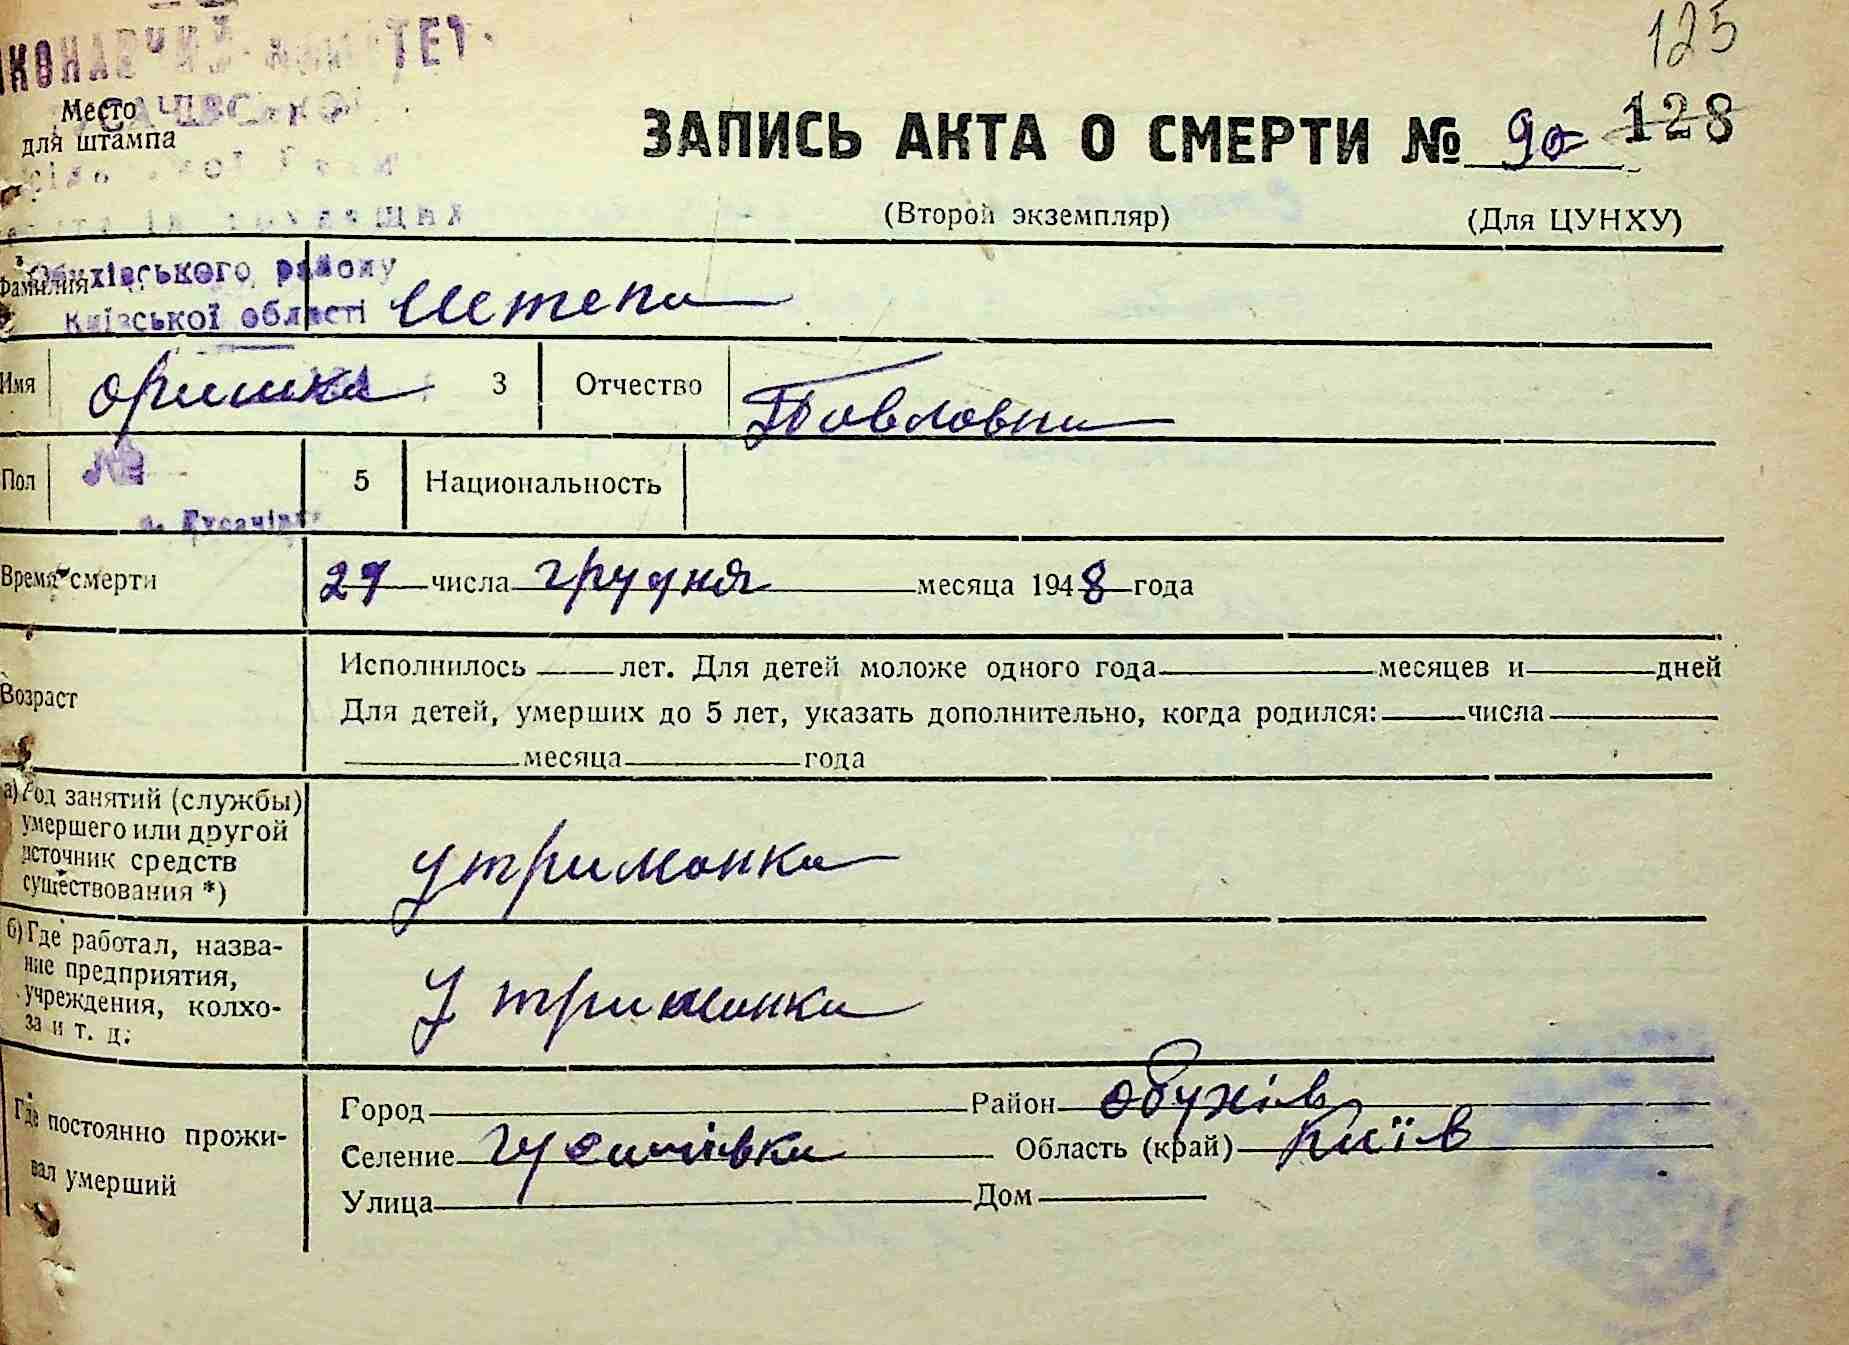 125
ВИКОНАВЧИЙ КОМІТЕТ
Место
для штампа
ЗАПИСЬ АКТА О СМЕРТИ № 90 128
(Второй экземпляр) (Для ЦУНХУ)
Обухівського району
Київської області
Фамилия Штепа
Имя Оришка 3 Отчество Павловна
Пол 5 Национальность
с. Гусачівка
Время смерти 27 числа грудня месяца 1948 года
Возраст
Исполнилось лет. Для детей моложе одного года месяцев и дней
Для детей, умерших до 5 лет, указать дополнительно, когда родился: числа
месяца года
а) Род занятий (службы)
умершего или другой
источник средств
существования *)
утриманка
б) Где работал, назва-
ние предприятия,
учреждения, колхо-
за и т. д:
утриманка
Где постоянно прожи-
вал умерший
Город Район Обухів
Селение Гусачівка Область (край) Київ
Улица Дом